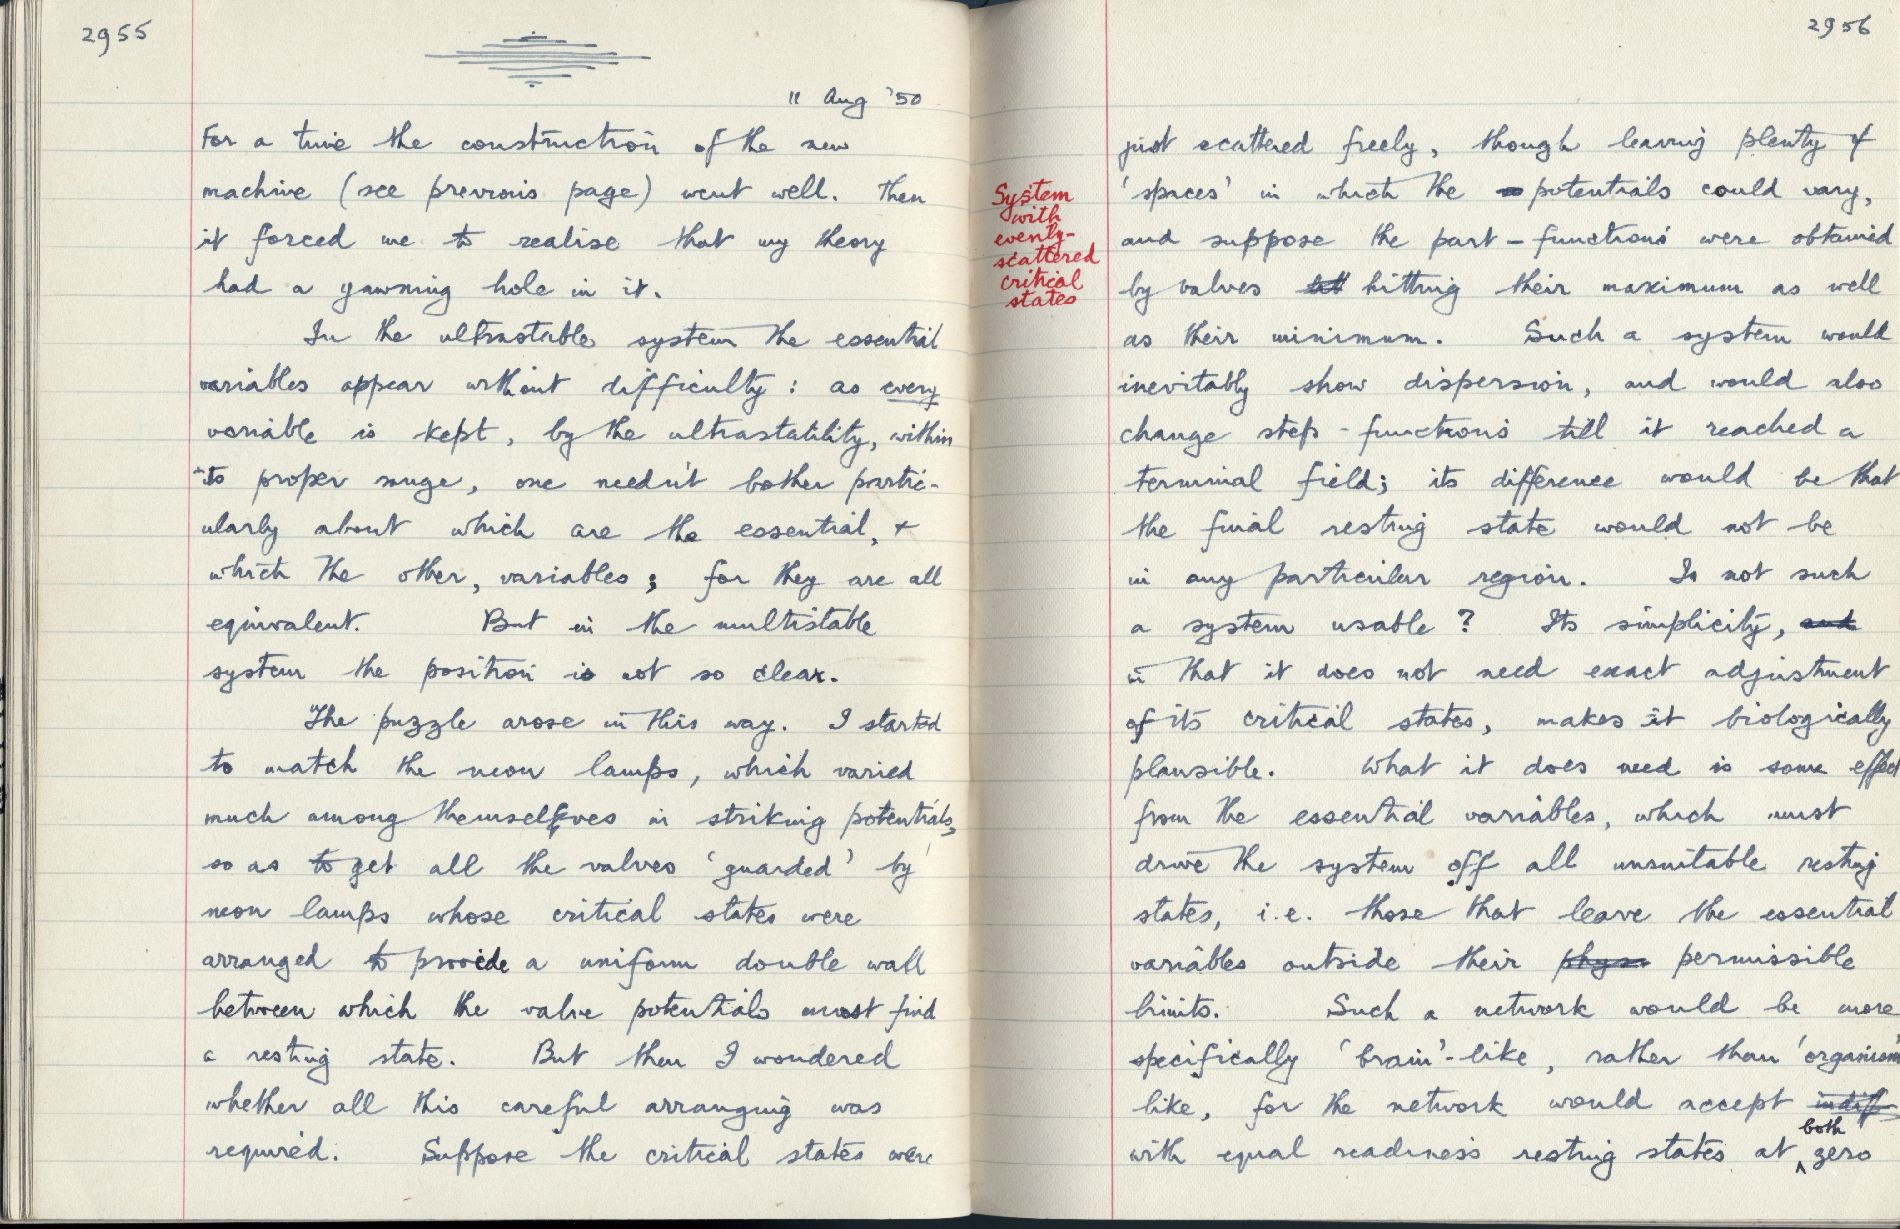 2955
11 Aug '50
For a time the construction of the new
machine (see previous page) went well. Then
it forced me to realise that my theory
had a yawning hole in it.
In the ultrastable system the essential
variables appear without difficulty: as every
variable is kept, by the ultrastability, within
its proper range, one needn't bother partic-
ularly about which are the essential, +
which the other, variables; for they are all
equivalent. But in the multistable
system the position is not so clear.
The puzzle arose in this way. I started
to match the neon lamps, which varied
much among themselves in striking potentials,
so as to get all the valves 'guarded' by
neon lamps whose critical states were
arranged to provide a uniform double wall
between which the valve potentials must find
a resting state. But then I wondered
whether all this careful arranging was
required. Suppose the critical states were
2956
System
with
evenly-
scattered
critical
states
just scattered freely, though leaving plenty of
'spaces' in which the potentials could vary,
and suppose the part-functions were obtained
by valves hitting their maximum as well
as their minimum. Such a system would
inevitably show dispersion, and would also
change step-functions till it reached a
terminal field; its difference would be that
the final resting state would not be
in any particular region. Is not such
a system usable? Its simplicity, and
in that it does not need exact adjustment
of its critical states, makes it biologically
plausible. What it does need is some effect
from the essential variables, which must
drive the system off all unsuitable resting
states, i.e. those that leave the essential
variables outside their phys. permissible
limits. Such a network would be more
specifically 'brain'-like, rather than 'organism'
like, for the network would accept indiff
with equal readiness resting states at both zero